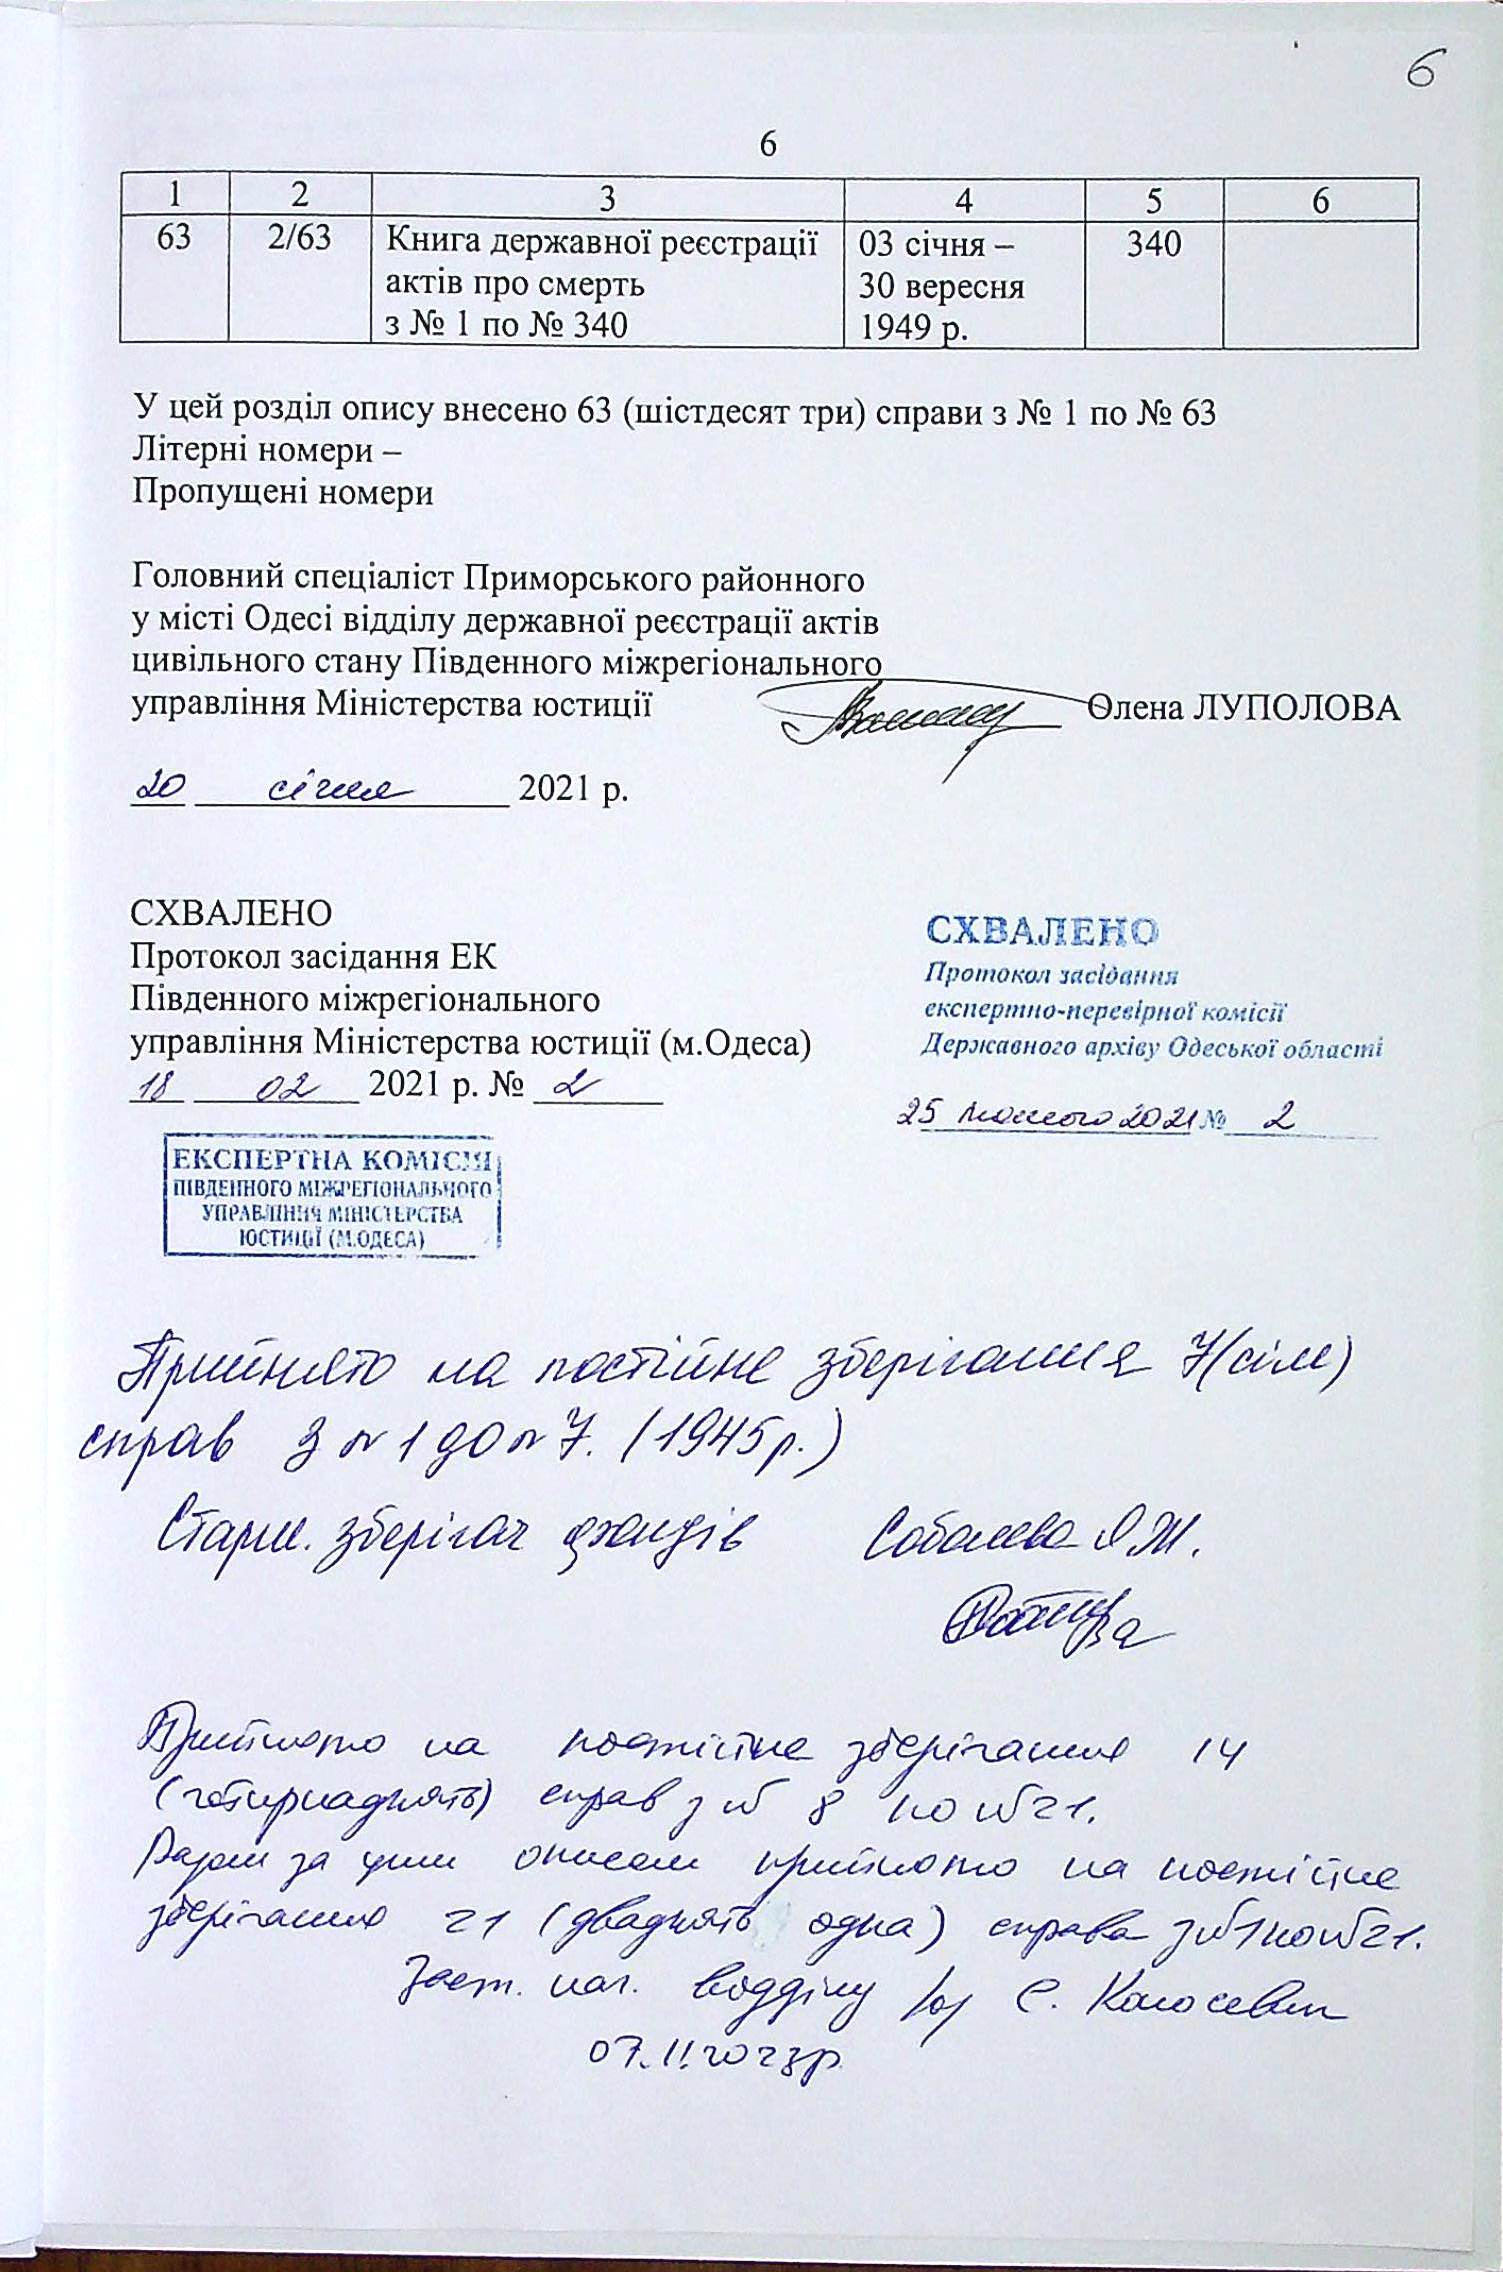 6
6
1 2 3 4 5 6
63 2/63 Книга державної реєстрації 03 січня – 340
актів про смерть 30 вересня
з № 1 по № 340 1949 р.
У цей розділ опису внесено 63 (шістдесят три) справи з № 1 по № 63
Літерні номери –
Пропущені номери
Головний спеціаліст Приморського районного
у місті Одесі відділу державної реєстрації актів
цивільного стану Південного міжрегіонального
управління Міністерства юстиції Олена ЛУПОЛОВА
20 січня 2021 р.
СХВАЛЕНО
Протокол засідання ЕК
Південного міжрегіонального
управління Міністерства юстиції (м.Одеса)
18 02 2021 р. № 2
СХВАЛЕНО
Протокол засідання
експертно-перевірної комісії
Державного архіву Одеської області
25 лютого 2021 № 2
ЕКСПЕРТНА КОМІСІЯ
ПІВДЕННОГО МІЖРЕГІОНАЛЬНОГО
УПРАВЛІННЯ МІНІСТЕРСТВА
ЮСТИЦІЇ (М.ОДЕСА)
Прийнято на постійне зберігання 7 (сім)
справ з № 1 до № 7. (1945 р.)
Старш. зберігач фондів
Прийнято на постійне зберігання 14
(чотирнадцять) справ з № 8 по № 21.
Разом за цим описом прийнято на постійне
зберігання 21 (двадцять одна) справа з № 1 по № 21.
Заст. нач. відділу С.
07.11.2023р.